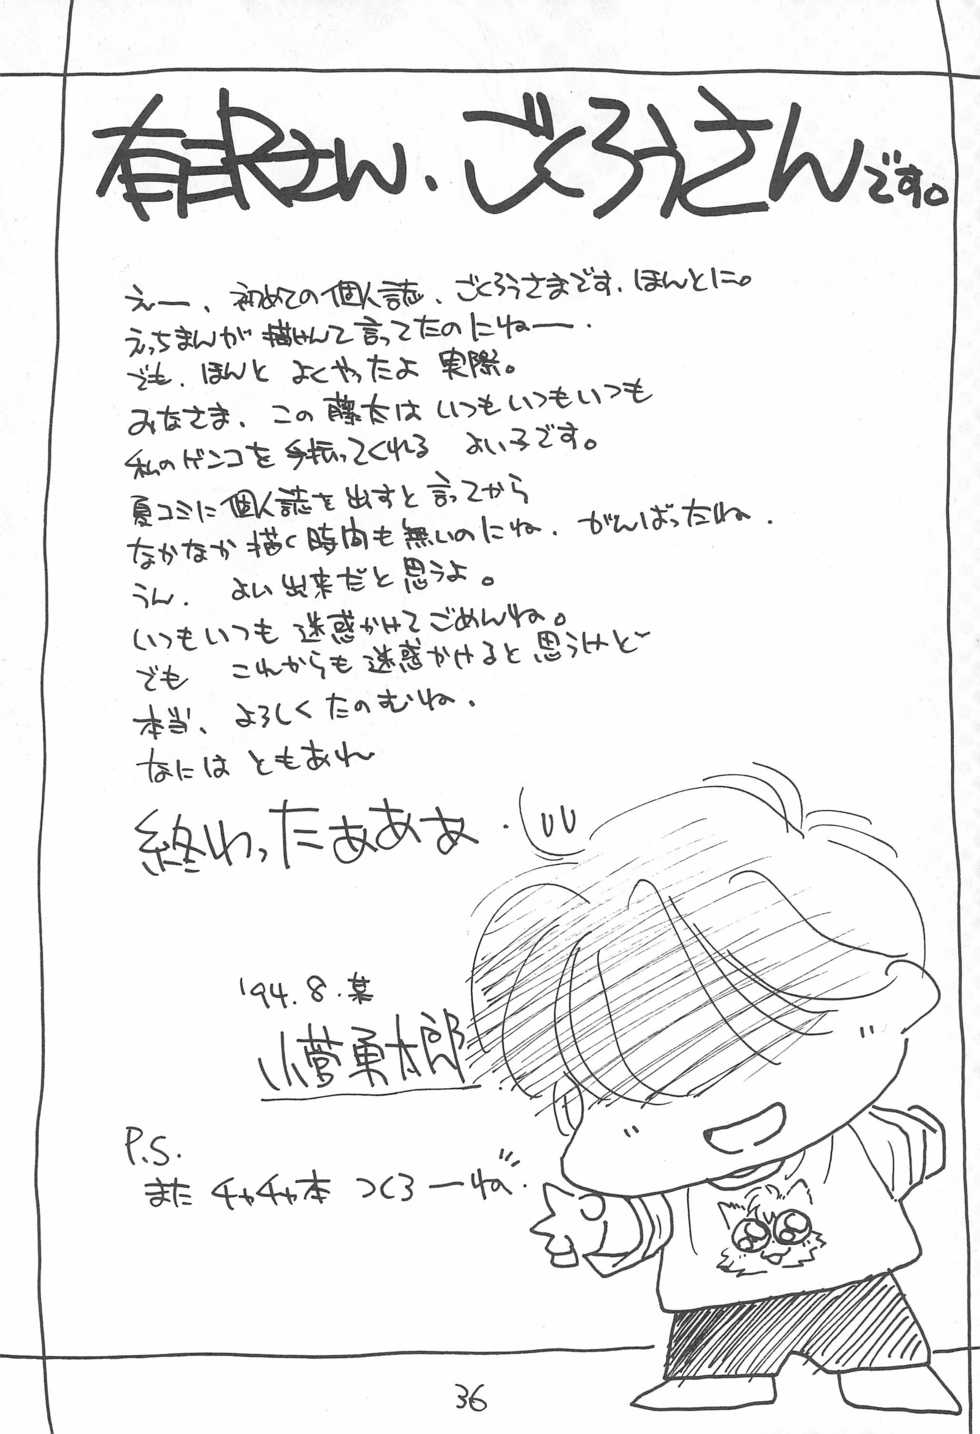 有沢さん、ごくろうさんです。
えー、初めての個人誌、ごくろうさまです、ほんとに。
えっちまんが描けんて言ってたのにねー.
でも、ほんと よくやったよ 実際。
みなさま、この 藤太は いつもいつもいつも
私のゲンコを手伝ってくれる よい子です。
夏コミに個人誌を出すと言ってから
なかなか描く時間も無いのにね、がんばったね.
うん、よい出来だと思うよ。
いつもいつも 迷惑かけてごめんね。
でも これからも迷惑かけると思うけど
本当、よろしくたのむね.
なには ともあれ
終わったぁあぁ.
'94.8.某
小菅勇太郎
P.S.
また チャチャ本 つくろーね.
36